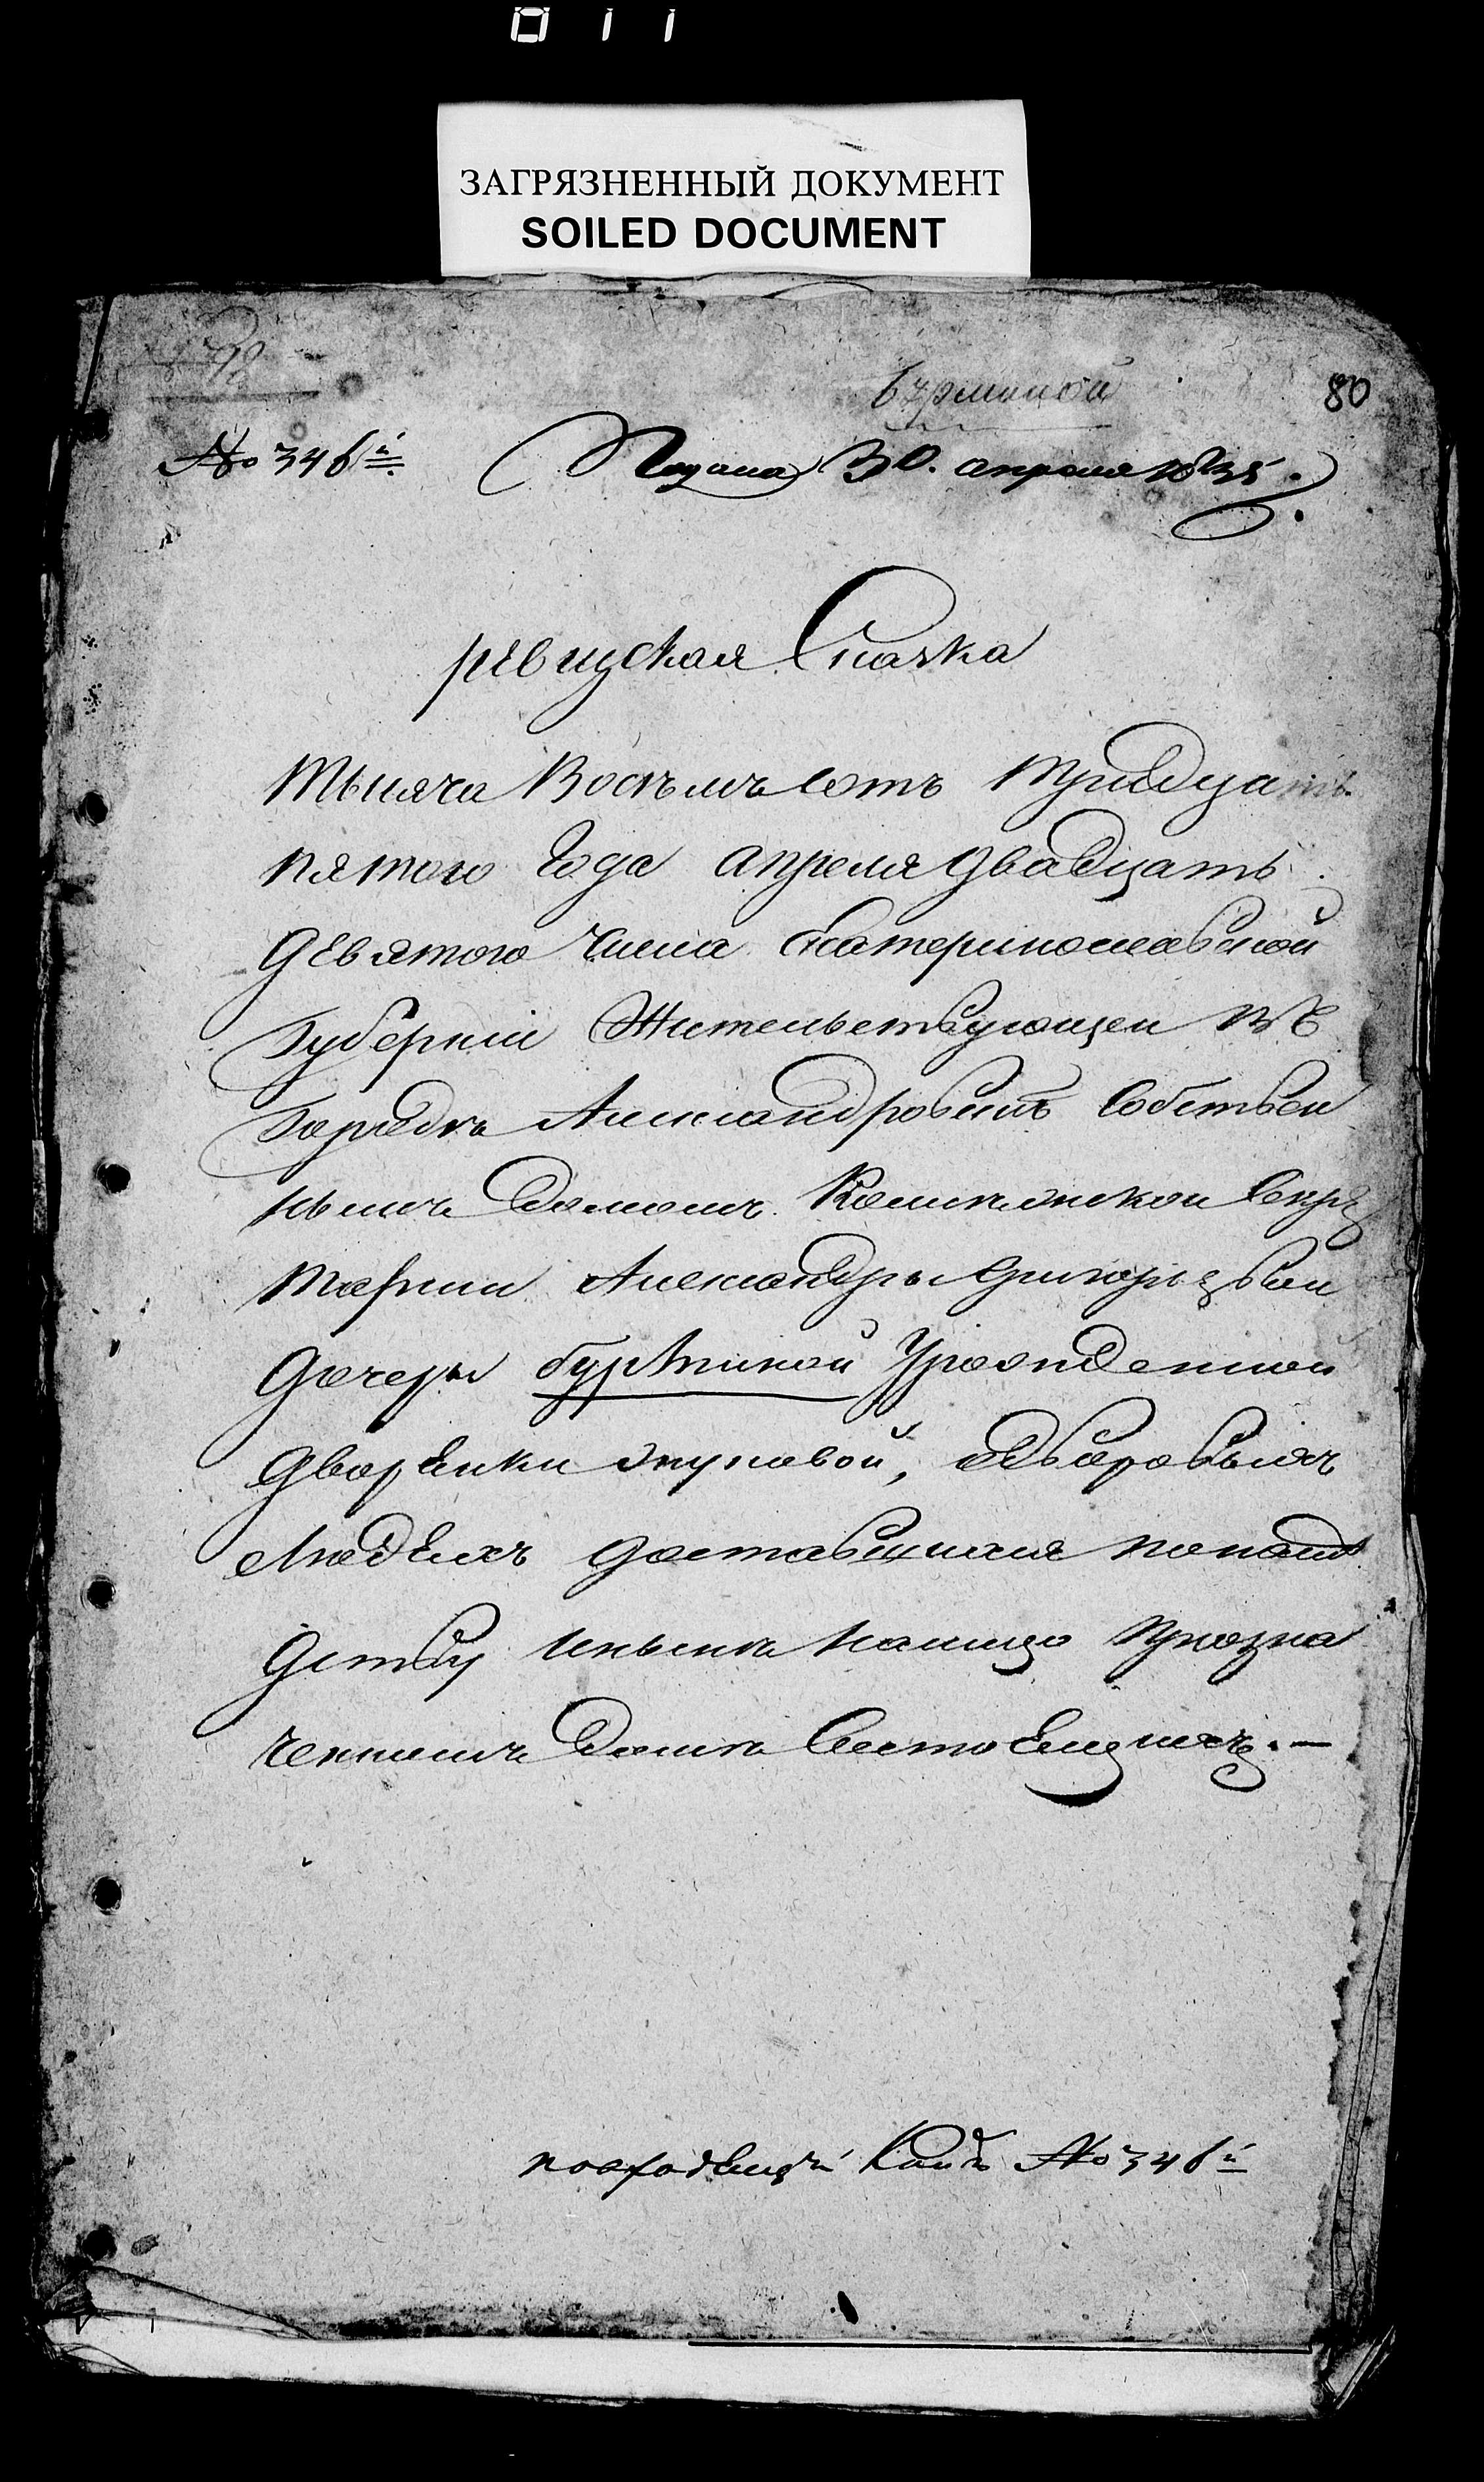 011
ЗАГРЯЗНЕННЫЙ ДОКУМЕНТ
SOILED DOCUMENT
80
№ 346й Подана 30. апреля 1835.
ревизская Сказка
тысяча Восемъ сотъ тридцать
пятого Года апреля двадцать
девятого числа Екатеринославской
Губерніи Жительствующей въ
Городе Александровскъ Собствен
нымъ домомъ Колежской Секре
тарши Александры Григорьевой
дочери бурминой Урожденной
дворянки, одворовыхъ
людяхъ доставшихся
детву нашего Прозна
ченнымъ домъ Состоящихъ. —
повходящей Книге № 346й